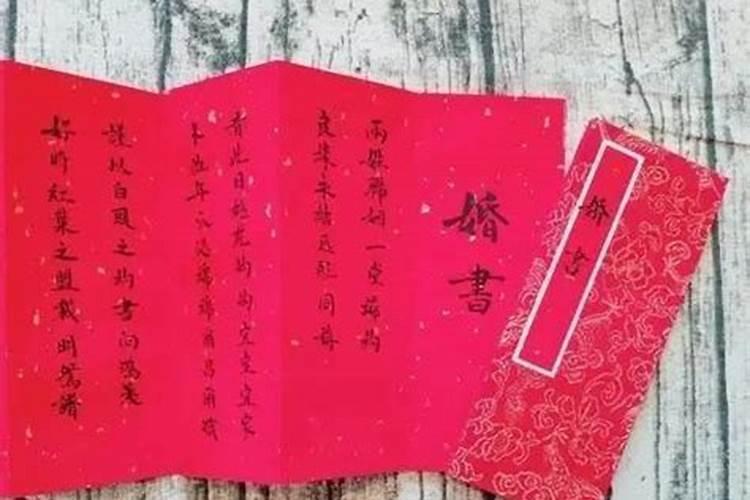 婚書
婚書
兩姓聯姻一堂締約
良緣永結匹配同稱
看此日桃花灼灼宜室宜家
卜他年瓜瓞綿綿爾昌爾熾
謹以白頭之約書向鴻箋
好將紅葉之盟載明鴛譜